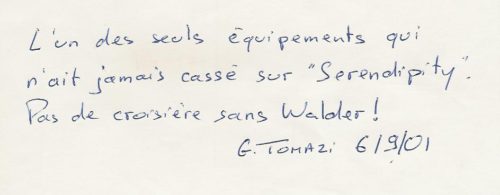 L'un des seuls équipements qui
n'ait jamais cassé sur "Serendipity".
Pas de croisière sans Walder !
G. TOMAZI 6/9/01